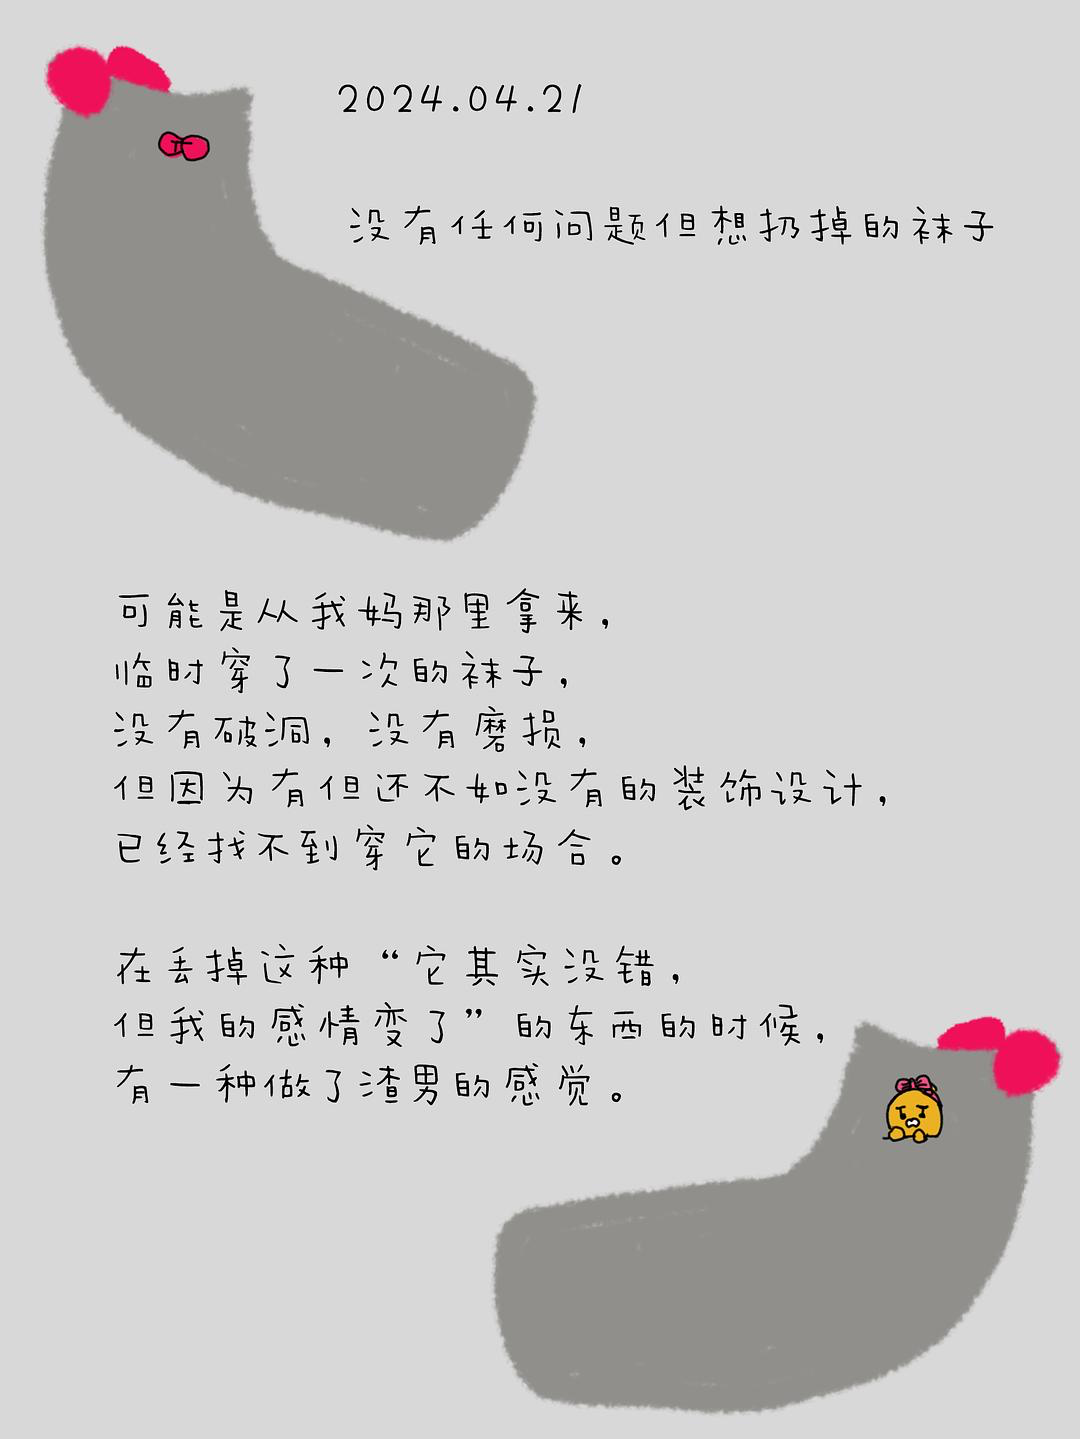 2024.04.21
没有任何问题但想扔掉的袜子
可能是从我妈那里拿来，
临时穿了一次的袜子，
没有破洞，没有磨损，
但因为有但还不如没有的装饰设计，
已经找不到穿它的场合。
在丢掉这种“它其实没错，
但我的感情变了”的东西的时候，
有一种做了渣男的感觉。